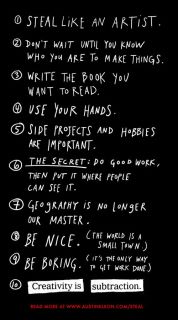 ① STEAL LIKE AN ARTIST.
② DON'T WAIT UNTIL YOU KNOW
WHO YOU ARE TO MAKE THINGS.
③ WRITE THE BOOK YOU
WANT TO READ.
④ USE YOUR HANDS.
⑤ SIDE PROJECTS AND HOBBIES
ARE IMPORTANT.
⑥ THE SECRET: DO GOOD WORK,
THEN PUT IT WHERE PEOPLE
CAN SEE IT.
⑦ GEOGRAPHY IS NO LONGER
OUR MASTER.
⑧ BE NICE. (THE WORLD IS A
SMALL TOWN.)
⑨ BE BORING. (IT'S THE ONLY WAY
TO GET WORK DONE.)
⑩ Creativity is subtraction.
READ MORE AT WWW.AUSTINKLEON.COM/STEAL